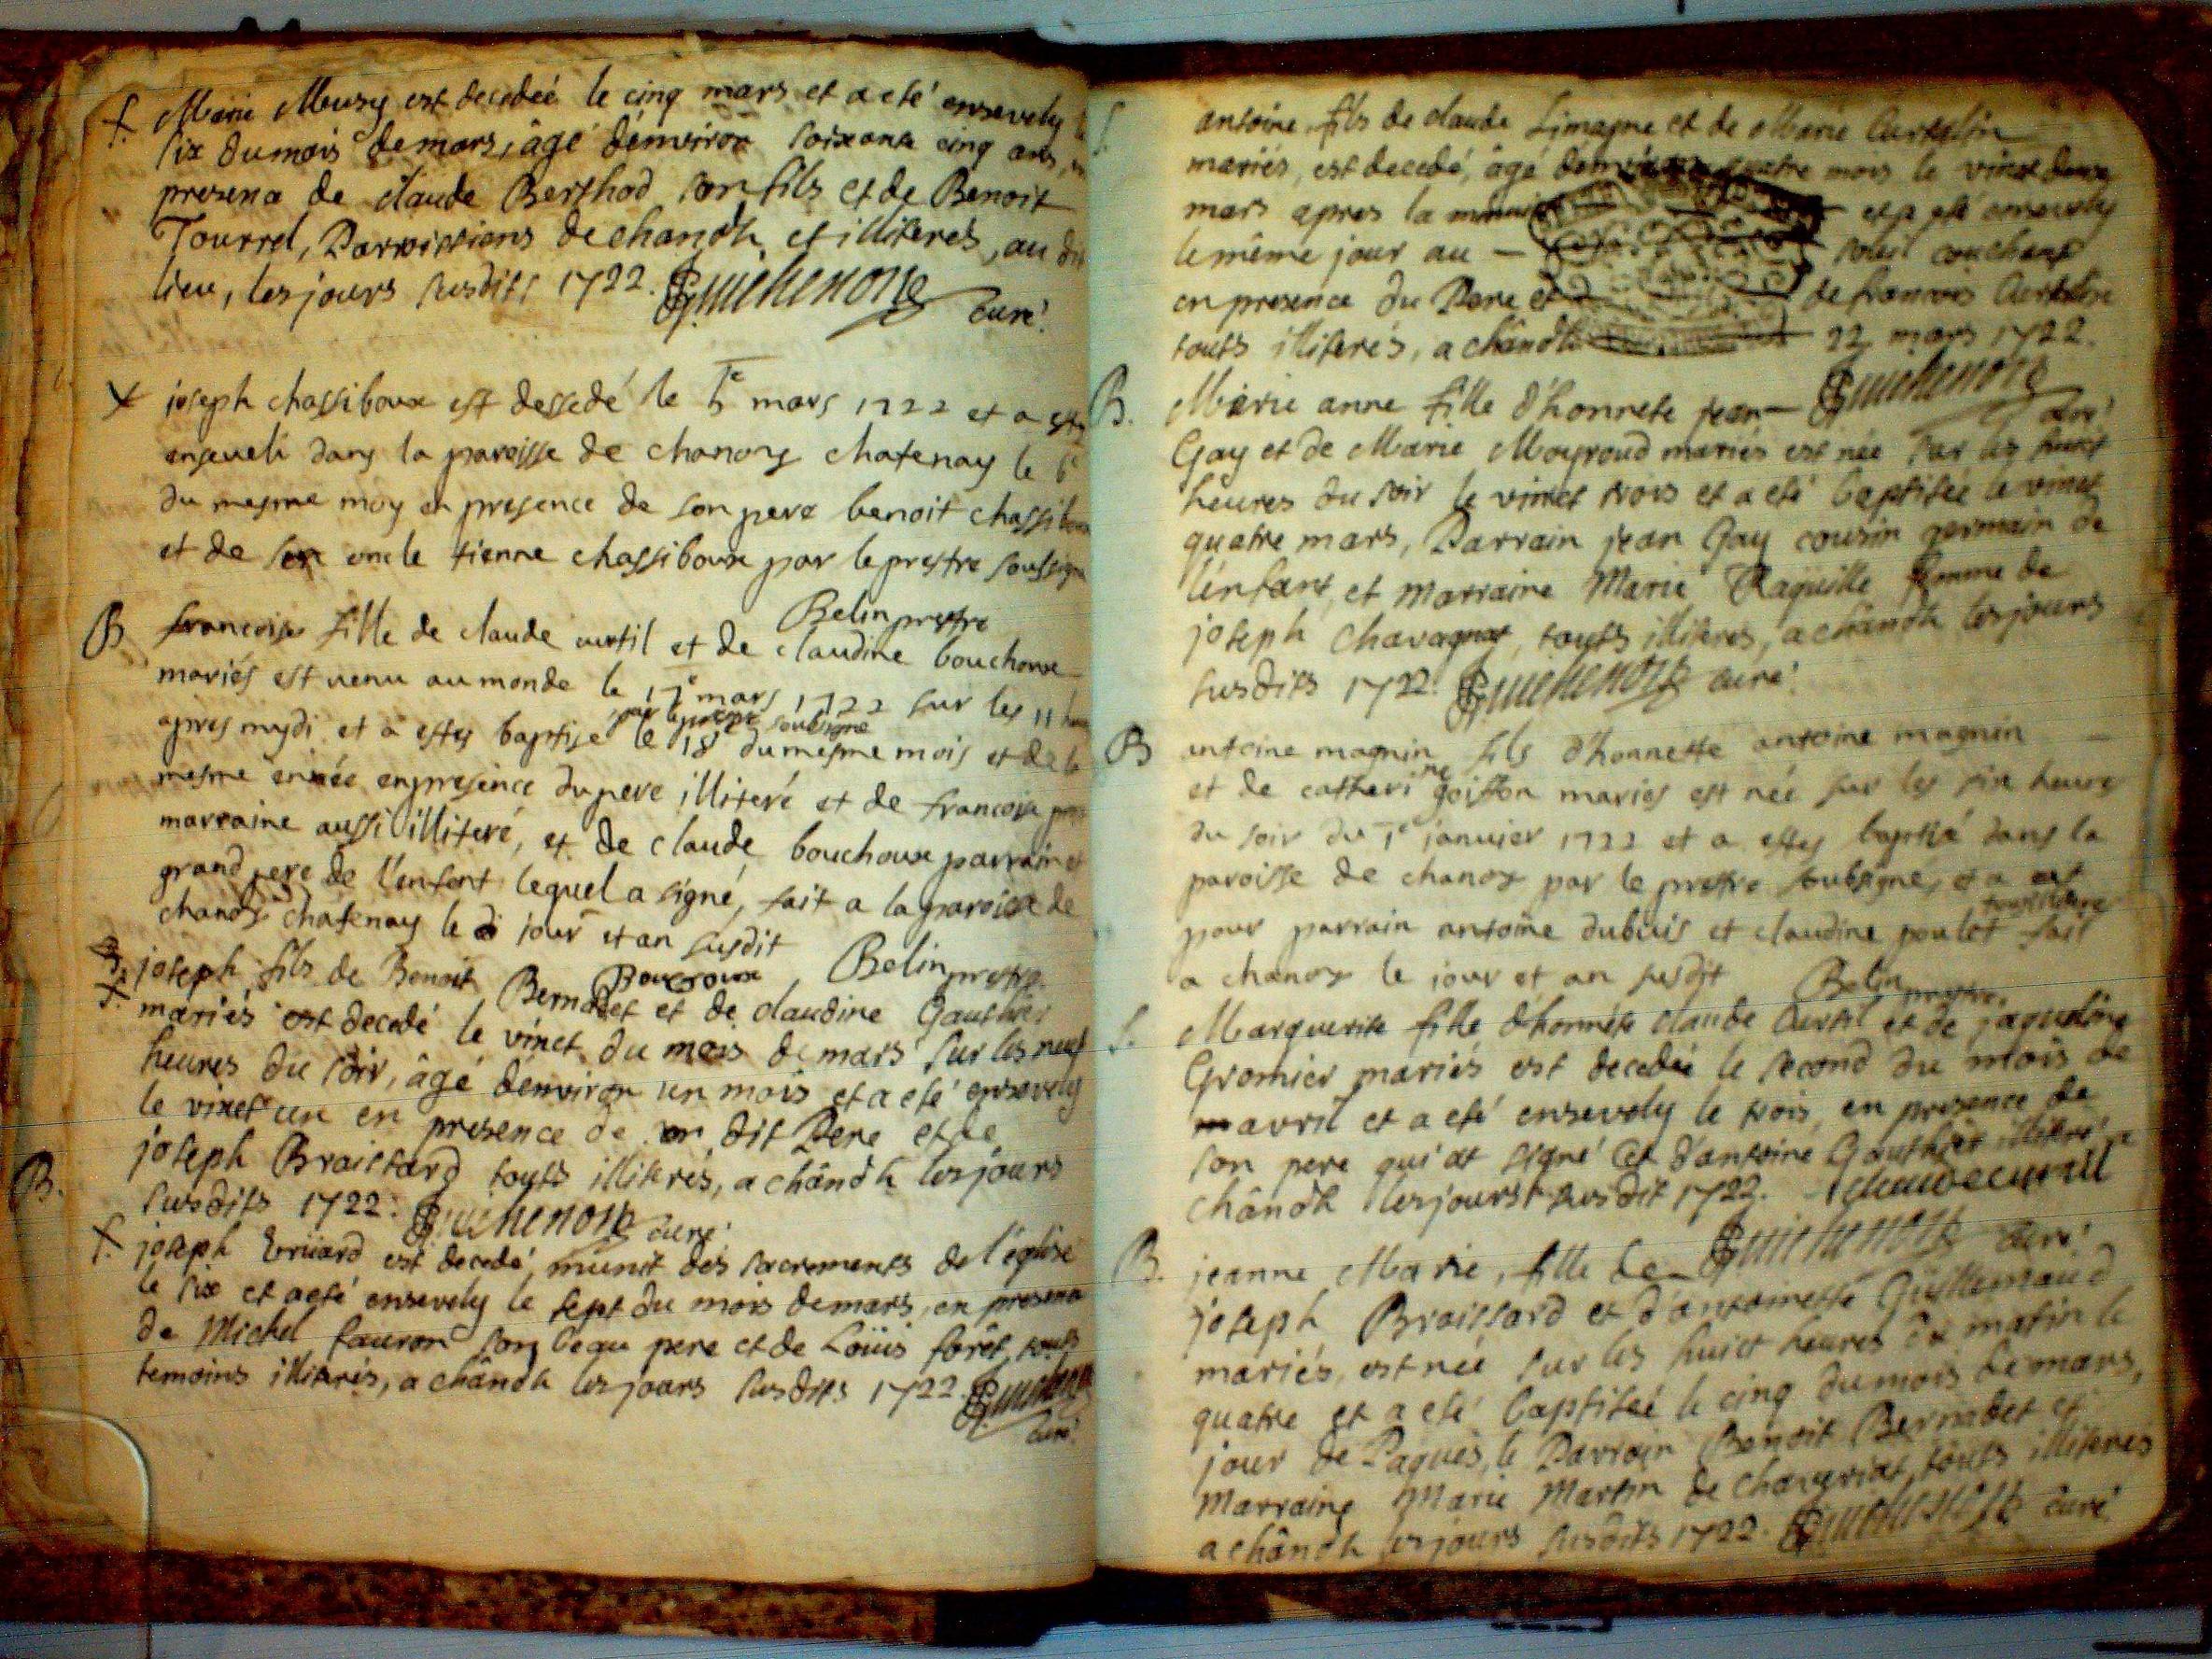 Marie Musy est decedeé le cinq mars et a eté ensevely le
six du mois de mars, âgé d'environ soixante cinq ans, en
presence de claude Berthod son fils et de Benoit
Tourrel, Parroissiens de chanoz, et illiteres, au dit
lieu, les jours susdits 1722. Guichenon curé.
+ joseph chassiboux est dessedé le 5e mars 1722 et a estes
enseueli dans la paroisse de chanoz chatenay le 6e
du mesme moy en presence de son pere benoit chassiboux
et de son oncle tienne chassiboux par le prestre soussigné
Belin prestre
B francoise fille de claude curtil et de claudine bouchoux
mariés est venu au monde le 17e mars 1722 sur les 11 heures
apres mydi et a estes baptise par le prestre soubsigné le 18 du mesme mois et de la
mesme année en presence du pere illiteré et de francoise
marraine aussi illiteré, et de claude bouchoux parrain et
grand pere de l'enfent lequel a signé, fait a la paroisse de
chanoz chatenay le jour et an susdit
Boucroux Belin prestre
joseph fils de Benoit Bernadet et de claudine Gauthier
mariés est decedé le vinct du mois de mars sur les neuf
heures du soir, âgé d'environ un mois et a eté ensevely
le vinct un en presence de son dit Pere et de
joseph Braissard touts illiterés, a chânoz les jours
susdits 1722. Guichenon curé
B.
joseph Eruard est decedé, munit des sacrements de l'église
le six et a eté ensevely le sept du mois de mars, en presence
de Michel fauron son beau pere et de Loüis forêt, touts
temoins illiterés, a chânoz les jours susdits 1722. Guichenon
curé.
antoine, fils de claude Limagne et de Marie Curtelin
mariés, est decedé, âgé d'environ quatre mois le vinct deux
mars apres la minuit et a eté ensevely
le même jour au — soleil couchant
en presence du Pere et de francois Curtelin
touts illiterés, a chânoz 22 mars 1722.
Guichenon curé
B. Marie anne fille d'honnete jean —
Gay et de Marie Moyroud mariés est née sur les huict
heures du soir le vinct trois et a eté baptiseé le vinct
quatre mars, Parrain jean Gay cousin germain de
l'enfant, et marraine Marie Raquille femme de
joseph Chavagnat, touts illiterés, a chânoz les jours
susdits 1722. Guichenon curé.
B antoine magnin fils d'honnette antoine magnin —
et de catherine goiffon mariés est née sur les sin heures
du soir du 1e januier 1722 et a estes baptisé dans la
paroisse de chanoz par le prestre soubsigne, et a eut
pour parrain antoine dubuis et claudine poulet fait
a chanoz le jour et an susdit Belin prestre.
Marguerite fille d'honnête claude Curtil et de jaqueline
Gromier mariés est decedeé le second du mois de
avril et a eté ensevely le trois, en presence de
son pere qui at signé et d'antoine Gauthier illiteré a
chânoz les jours susdit 1722. claude curtil
Guichenon curé.
B. jeanne Marie, fille de
joseph Braissard et d'antoinette Guillemaud
mariés, est née sur les huict heures du matin le
quatre et a eté baptiseé le cinq du mois de mars,
jour de Paques, le Parrain Benoit Bernadet et
Marraine Marie Martin de chaveyriat, touts illiterés
a chânoz les jours susdits 1722. Guichenon curé